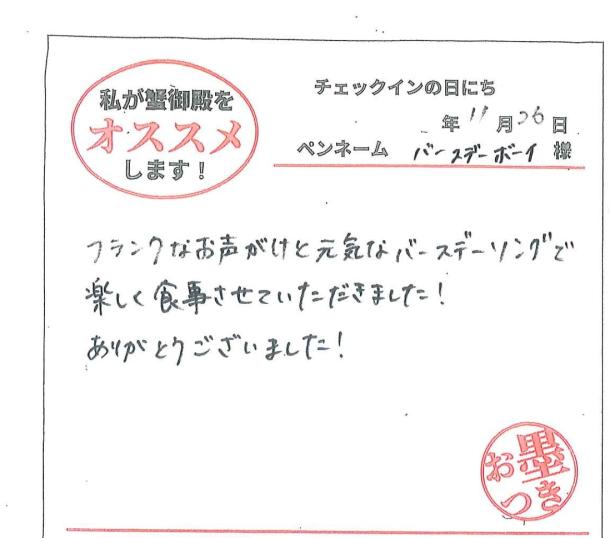 私が蟹御殿を
オススメ
します！
チェックインの日にち
年 11月26日
ペンネーム バースデーボーイ 様
フランクなお声がけと元気なバースデーソングで
楽しく食事させていただきました！
ありがとうございました！
お墨
つき